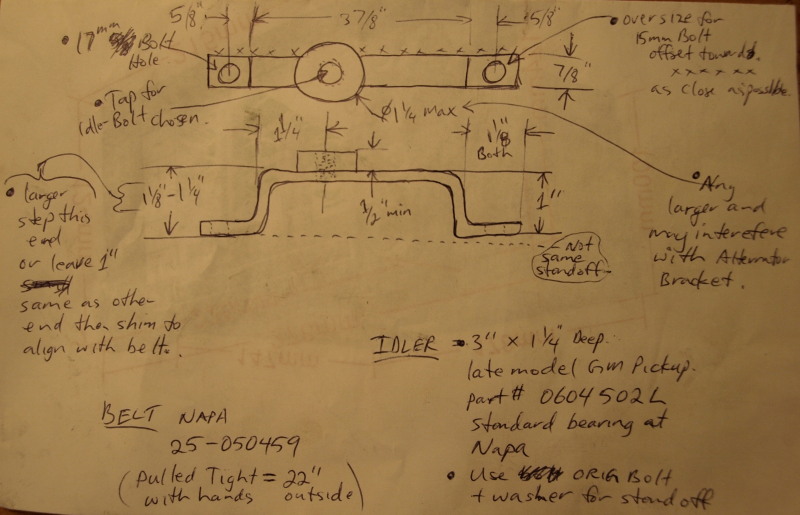 5/8"
3 7/8"
5/8"
• 17mm Bolt
Hole
• over size for
15mm Bolt
offset towards
x x x x x x
as close as possible.
7/8"
• Tap for
Idle-Bolt chosen.
ø 1 1/4 max
1 1/4"
1 1/8"
Both
1 1/8" - 1 1/4"
1/2" min
1"
Not
same
standoff
• larger
step this
end
or leave 1"
same as other
end then shim to
align with belt.
• Any
larger and
may interefere
with Alternator
Bracket.
IDLER • 3" x 1 1/4" Deep.
late model Gm Pickup.
part # 0604502L
standard bearing at
Napa
• Use ORIG Bolt
+ washer for standoff
BELT NAPA
25-050459
(Pulled Tight = 22"
with hands outside)